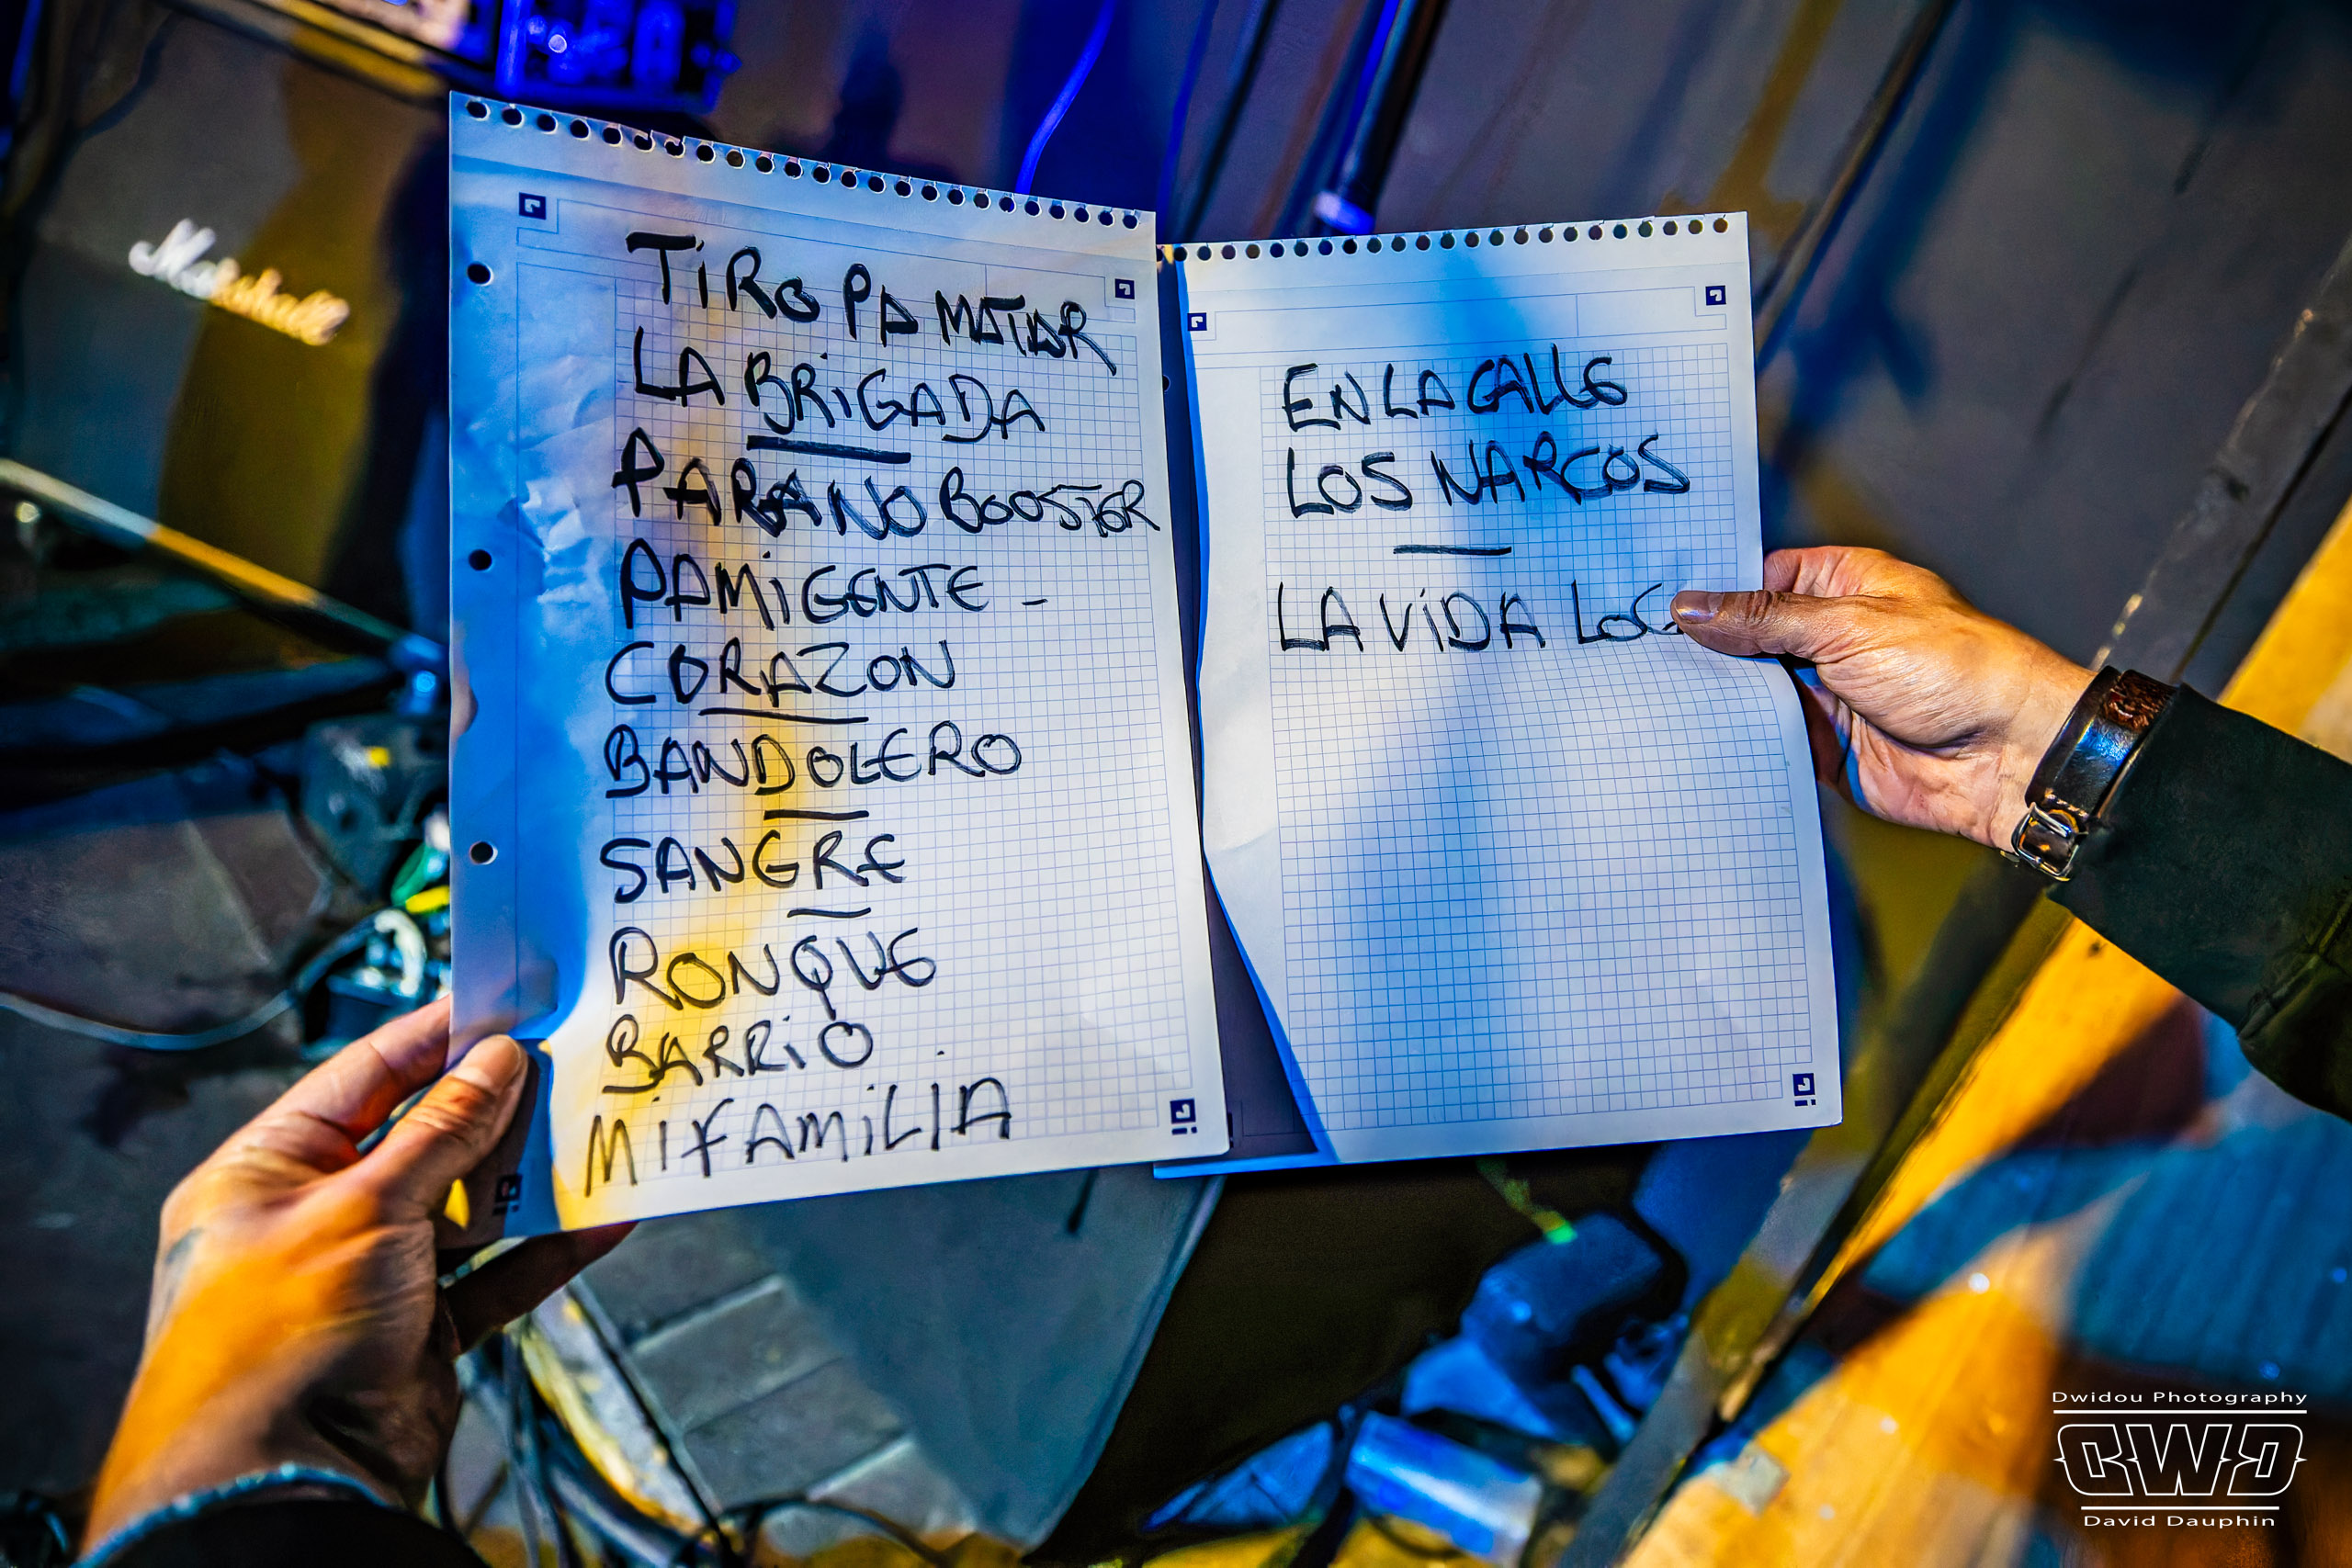 Marshall
TiRO PA MATAR
LA BRiGADA
PARANO BOOSTER
PAMiGENTE -
CORAZON
BANDOLERO
SANGRE
RONQUE
BARRiO
MiFAMiLIA
EN LA CALLE
LOS NARCOS
LA ViDA LOC
Dwidou Photography
DWD
David Dauphin